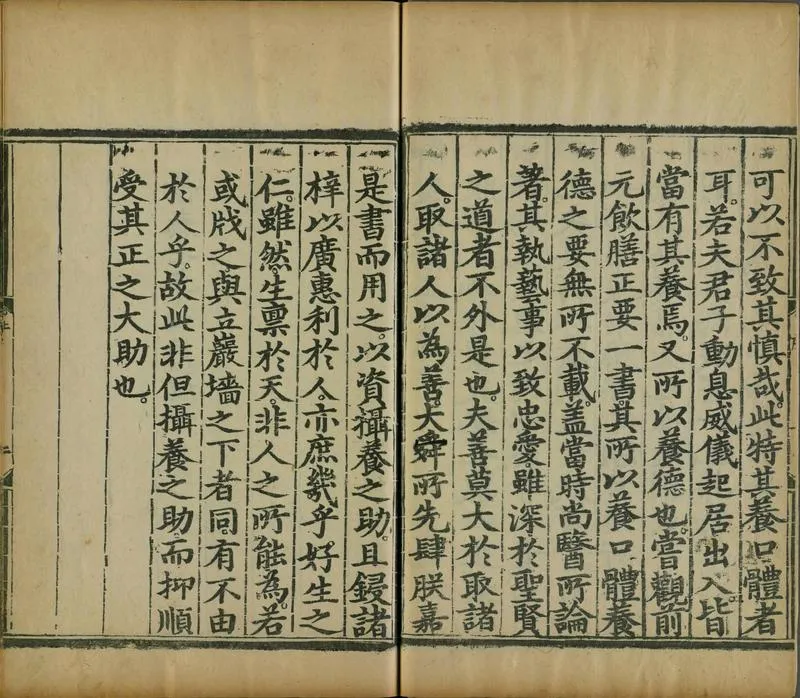 可以不致其慎哉。此特其養口體者
耳。若夫君子動息威儀起居出入皆
當有其養焉。又所以養德也。嘗觀前
元飲膳正要一書。其所以養口體養
德之要無所不載。盖當時尚醫所論
著。其執藝事以致忠愛。雖深於聖賢
之道者不外是也。夫善莫大於取諸
人。取諸人以為善大舜所先肆朕嘉
是書而用之。以資攝養之助。且鋟諸
梓以廣惠利於人。亦庶幾乎。好生之
仁。雖然。生禀於天。非人之所能為。若
或戕之與立巖墻之下者同有不由
於人乎。故此非但攝養之助。而抑順
受其正之大助也。